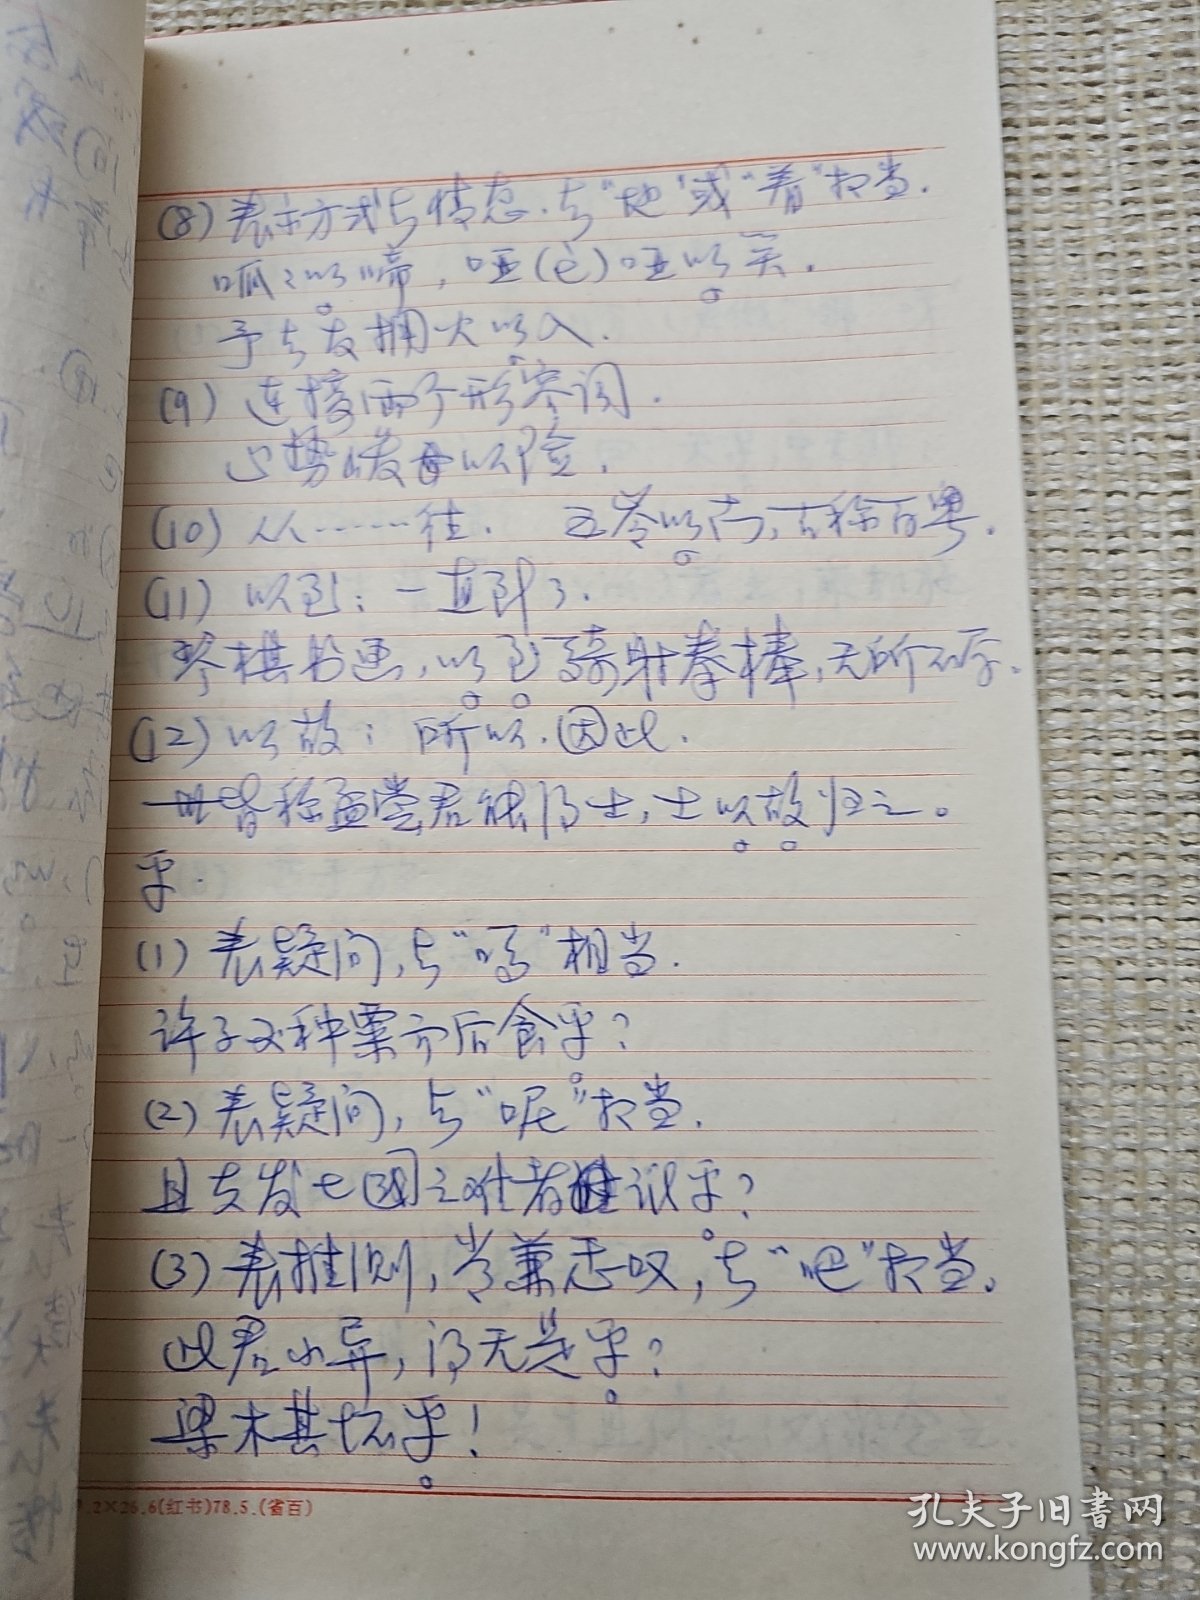 (8) 表示方式与情态.与"地"或"着"相当.
呱々以啼,哑(è)哑以笑.
予与友拥火以入.
(9) 连接两个形容词.
山势峻以险.
(10) 从……往. 五岺以南,古称百粤.
(11) 以至:一直到了.
琴棋书画,以至骑射拳棒,无所不学.
(12) 以故:所以.因此.
皆称孟尝君能得士,士以故归之。
乎.
(1) 表疑问,与"吗"相当.
许子必种粟而后食乎?
(2) 表疑问,与"呢"相当.
且夫发七国之难者谁乎?
(3) 表推测,常兼志叹,与"吧"相当.
此君小异,得无是乎?
梁木其坏乎!
.2×26.6(红书)78.5.(省百)
孔夫子旧书网
www.kongfz.com